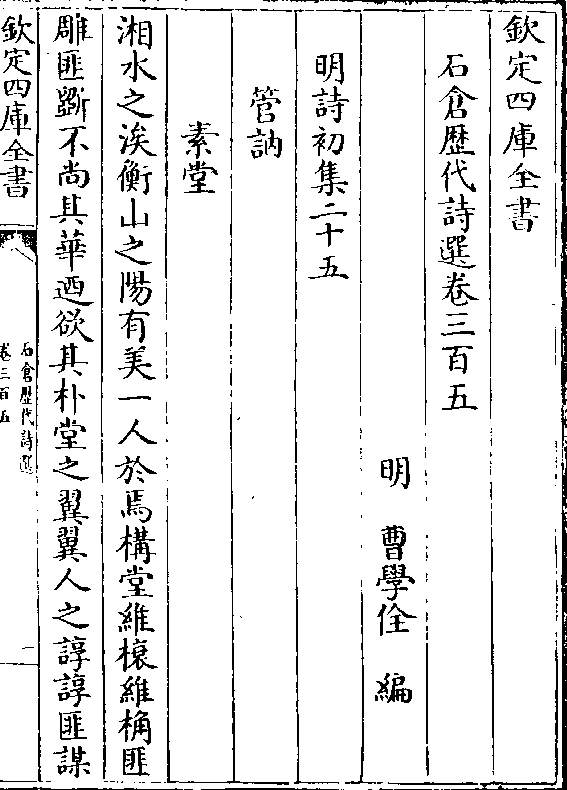 欽定四庫全書
石倉歷代詩選卷三百五
明　曹學佺　編
明詩初集二十五
管訥
素堂
湘水之涘衡山之陽有美一人於焉構堂維榱維桷匪
雕匪斵不尚其華迺欲其朴堂之翼翼人之諄諄匪謀
欽定四庫全書
石倉歷代詩選
卷三百五
一